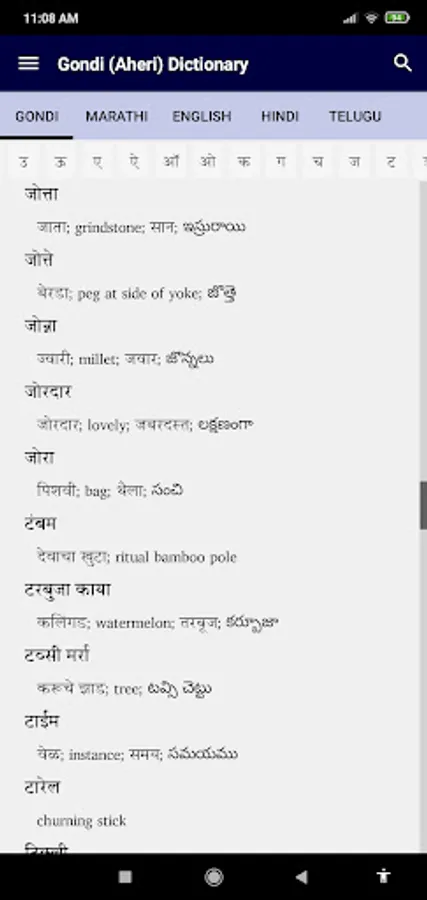 11:08 AM 94
Gondi (Aheri) Dictionary
GONDI MARATHI ENGLISH HINDI TELUGU
उ ऊ ए ऐ ऑ ओ क ग च ज ट
जोत्ता
जाता; grindstone; सान; ఇస్రురాయి
जोत्ते
थेरडा; peg at side of yoke; జొత్తె
जोन्ना
ज्वारी; millet; जवार; జొన్నలు
जोरदार
जोरदार; lovely; जबरदस्त; లక్షణంగా
जोरा
पिशवी; bag; थैला; సంచి
टंबम
देवाचा खुटा; ritual bamboo pole
टरबुजा काया
कलिंगड; watermelon; तरबूज; కర్బూజా
टव्सी मर्रा
करूचे झाड; tree; టవ్సి చెట్టు
टाईम
वेळ; instance; समय; సమయము
टारेल
churning stick